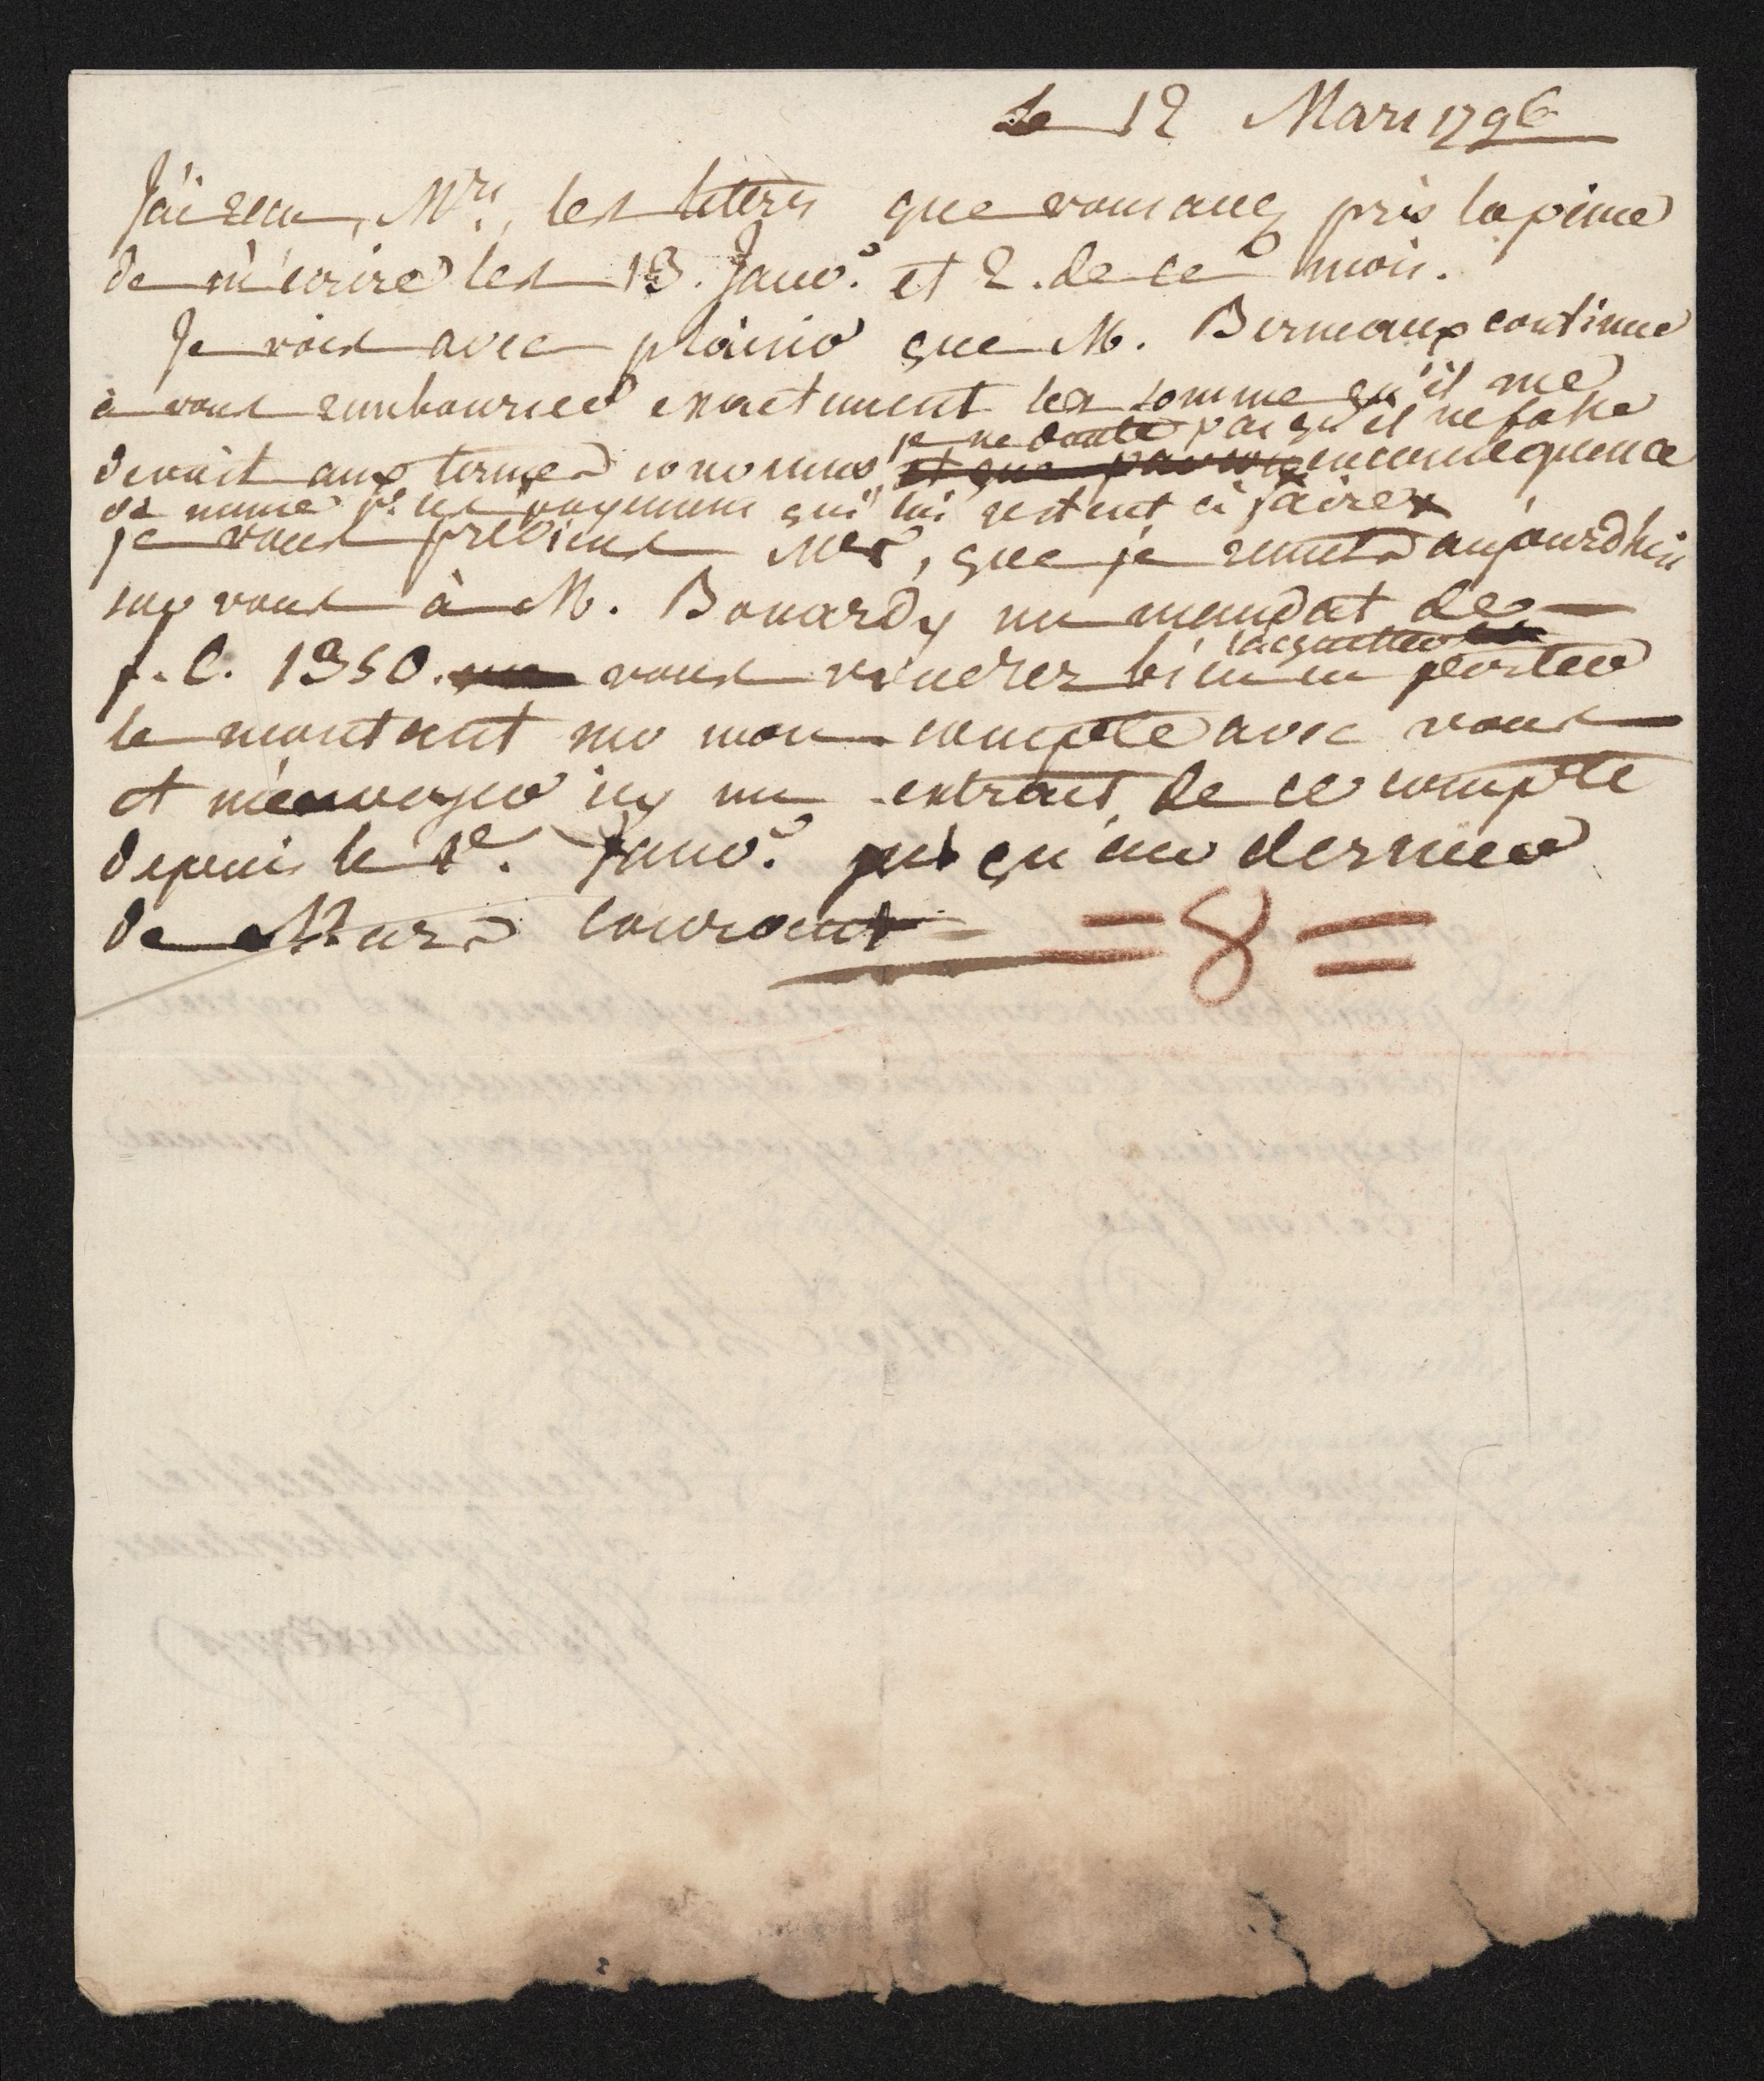 Le 12 Mars 1796
J'ai recu, Mrs, les lettres que vous avez pris la peine
de m'ecrire les 13. Janvr. et 2. de ce mois.
Je vois avec plaisir que M. Bermaux continue
à vous rembourser exactement les somme qu'il me
devait aux termes convenus, et que
je ne doute pas qu'il ne fasse
en consequence
de meme pr. les payemens qui lui restent à faire
je vous previens Mrs, que je remets aujourdhui
sur vous à M. Bouardy un mandat de
f. C. 1350. vous voudrez bien l'acquitter en porter
le montant sur mon compte avec vous
et m'envoyer icy un extrait de ce compte
depuis le 1e. Janvr. jusqu'au dernier
de Mars courant
=8=